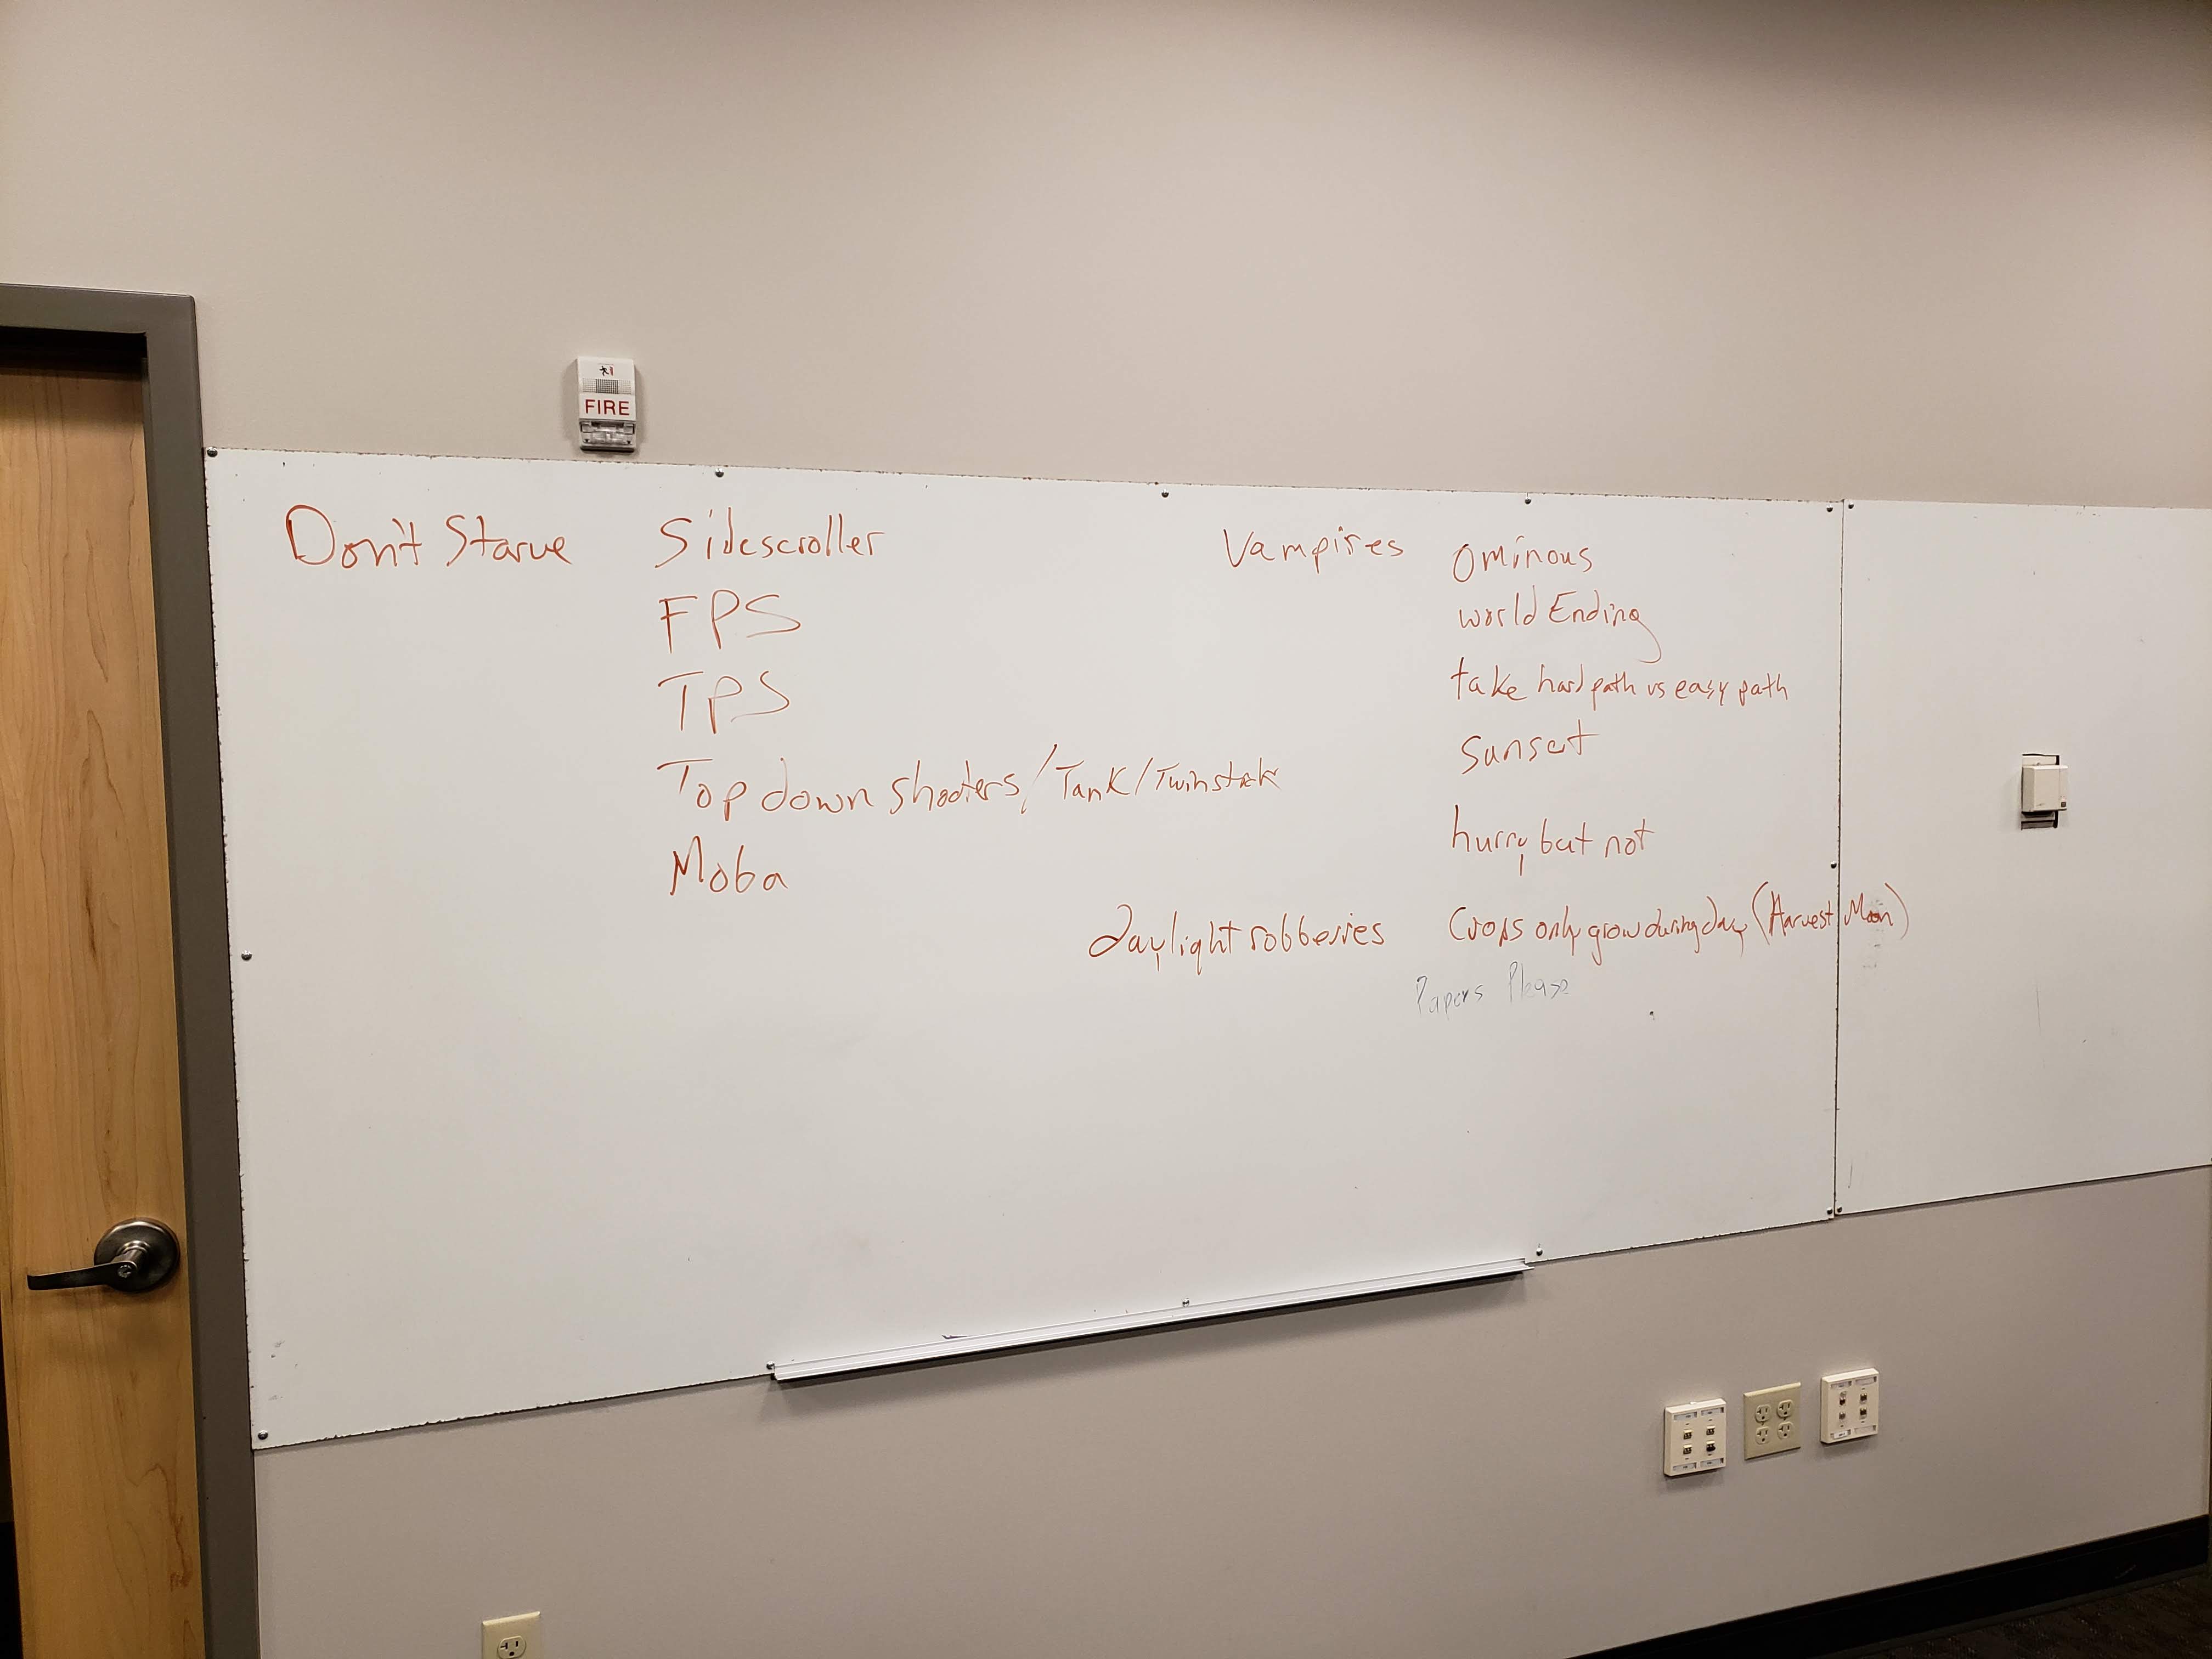 FIRE
Don't Starve
Sidescroller
FPS
TPS
Top down shooters/Tank/Twinstick
Moba
Vampires
daylight robberies
Ominous
world Ending
take hard path vs easy path
sunset
hurry but not
Crops only grow during day (Harvest Moon)
Papers Please